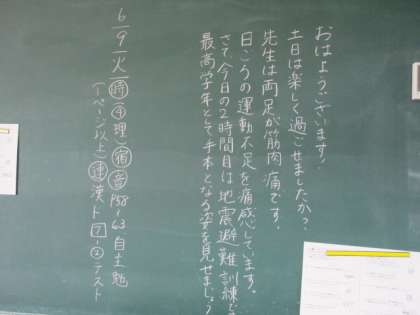 おはようございます！
土日は楽しく過ごせましたか？
先生は両足が筋肉痛です。
日ごろの運動不足を痛感しています。
さて今日の2時間目は地震避難訓練で
最高学年として手本となる姿を見せましょう
6/9火 時④理 宿音P58〜63 自主勉
(1ページ以上) 連漢ト7-②テスト